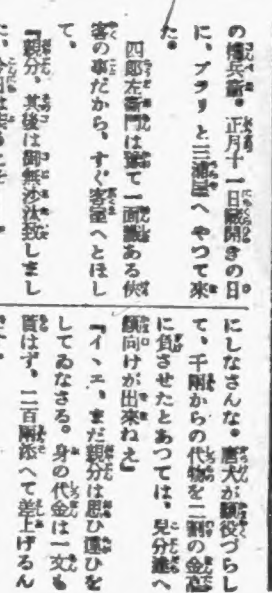 の權兵衞。正月十一日藏開きの日
に、ブラリと三浦屋へやつて來
た。
四郎左衞門は豫て一面識ある俠
客の事だから、すぐ客室へとほし
て、
『親分、其後は御無沙汰致しまし
にしなさんな。唐犬が顏役づらし
て、千兩からの代物を二割の金高
に負させたとあつては、兄分達へ
顏向けが出來ねえ』
『イヽエ、まだ親分は思ひ違ひを
してゐなさる。身の代金は一文も
貰はず、二百兩添へて差上げるん